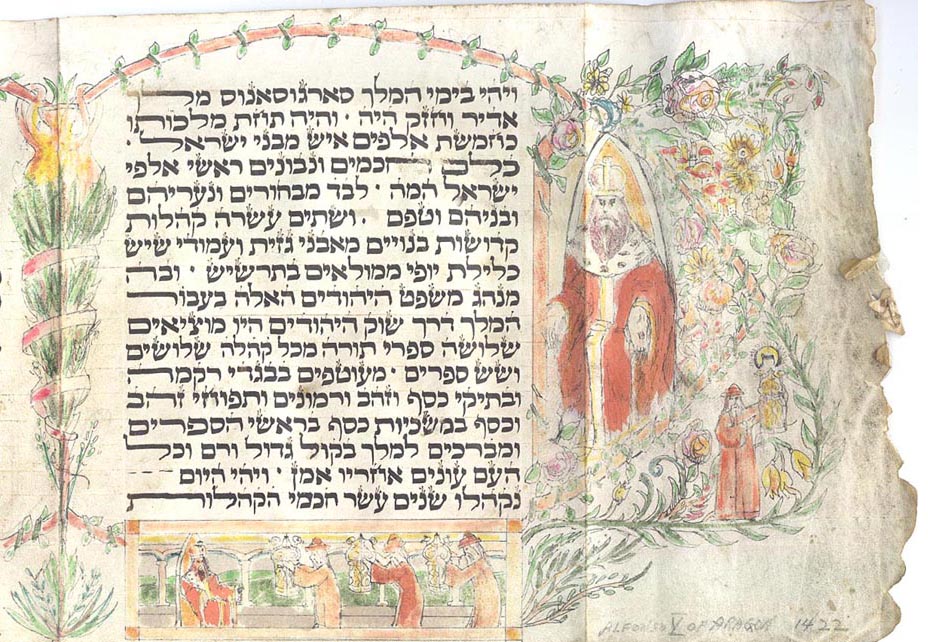 ויהי בימי המלך סארגוסאנוס מלך
אדיר וחזק היה · והיה תחת מלכותו
כחמשת אלפים איש מבני ישראל ·
כלם חכמים ונבונים ראשי אלפי
ישראל המה · לבד מבחורים ונעריהם
ובניהם וטפם · ושתים עשרה קהלות
קדושות בנויים מאבני גזית ועמודי שיש
כלילת יופי ממולאים בתרשיש · ובה
מנהג משפט היהודים האלה בעבור
המלך דרך שוק היהודים היו מוציאים
שלושה ספרי תורה מכל קהלה שלושים
ושש ספרים · מעוטפים בבגדי רקמה
ובתיקי כסף וזהב ורמונים ותפוחי זהב
וכסף במשכיות כסף בראשי הספרים
ומברכים למלך בקול גדול ורם וכל
העם עונים אחריו אמן · ויהי היום
נקהלו שנים עשר חכמי הקהלות
ALFONSO V OF ARAGON 1422